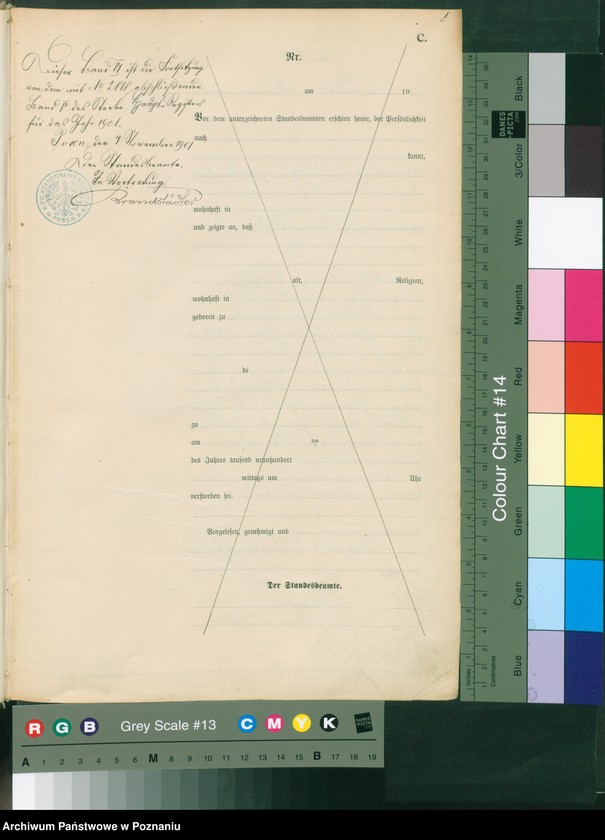 1
C.
Dieser Band VI ist die Fortsetzung
von dem mit No 2818 abschließenden
Band V des Sterbe Haupt-Registers
für das Jahr 1901.
Posen, den 4 November 1901
Der Standesbeamte.
In Vertretung.
Brandstädter
POSEN
Nr.
am 19
Vor dem unterzeichneten Standesbeamten erschien heute, der Persönlichkeit
nach
kannt,
wohnhaft in
und zeigte an, daß
alt, Religion,
wohnhaft in
geboren zu
de
zu
am ten
des Jahres tausend neunhundert
mittags um Uhr
verstorben sei.
Vorgelesen, genehmigt und
Der Standesbeamte.
Colour Chart #14
Blue Cyan Green Yellow Red Magenta White 3/Color Black
DANES
-PICTA
.COM
Inches
Centimetres
R G B Grey Scale #13 C M Y K
A 1 2 3 4 5 6 M 8 9 10 11 12 13 14 15 B 17 18 19
Archiwum Państwowe w Poznaniu